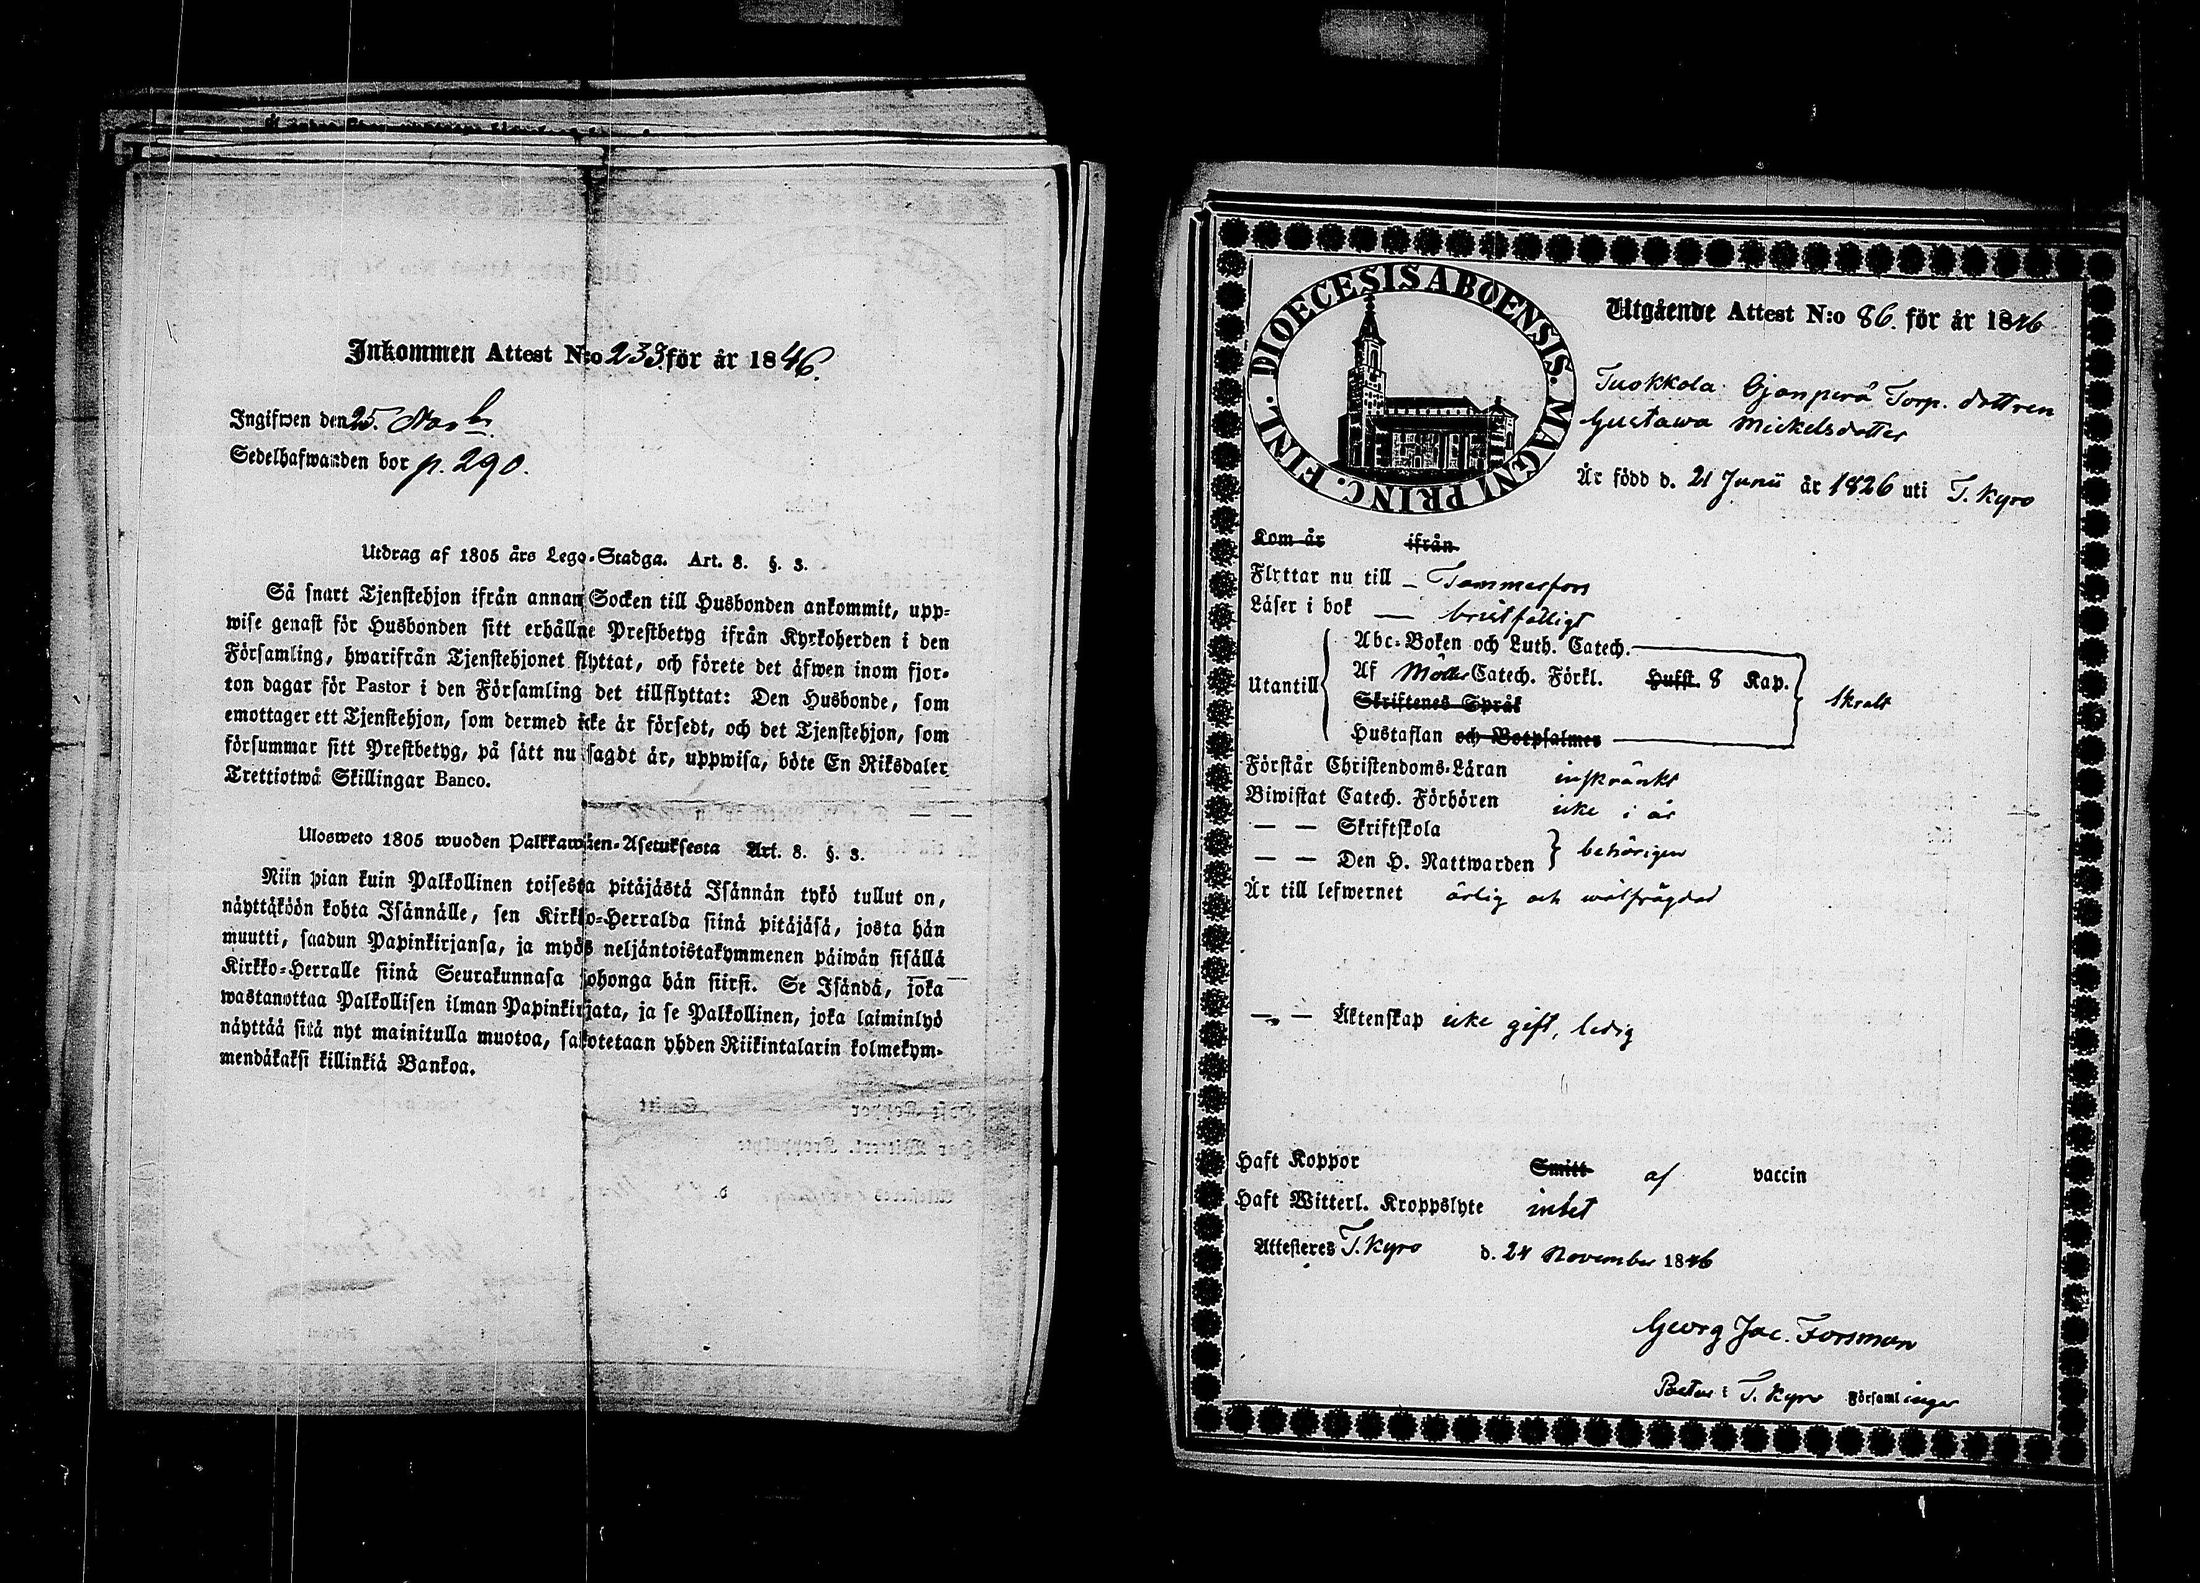 Inkommen Attest N:o 233. för år 1846.
Ingifwen den 25. Novbr
Sedelhafwanden bor p. 290.
Utdrag af 1805 års Lego-Stadga. Art. 8. §. 3.
Så snart Tjenstehjon ifrån annan Socken till Husbonden ankommit, upp-
wise genast för Husbonden sitt erhållne Prestbetyg ifrån Kyrkoherden i den
Församling, hwarifrån Tjenstehjonet flyttat, och förete det äfwen inom fjor-
ton dagar för Pastor i den Församling det tillflyttat: Den Husbonde, som
emottager ett Tjenstehjon, som dermed icke är försedt, och det Tjenstehjon, som
försummar sitt Prestbetyg, på sätt nu sagdt är, uppwisa, böte En Riksdaler
Trettiotwå Skillingar Banco.
Ulosweto 1805 wuoden Palkkawäen-Asetuksesta Art. 8. §. 3.
Niin pian kuin Palkollinen toisesta pitäjästä Isännän tykö tullut on,
näyttäköön kohta Isännälle, sen Kirkko-Herralda siinä pitäjäsä, josta hän
muutti, saadun Papinkirjansa, ja myös neljäntoistakymmenen päiwän sisällä
Kirkko-Herralle siinä Seurakunnasa johonga hän siirsi. Se Isändä, joka
wastanottaa Palkollisen ilman Papinkirjata, ja se Palkollinen, joka laiminlyö
näyttää sitä nyt mainitulla muotoa, sakotetaan yhden Riikintalarin kolmekym-
mendäkaksi killinkiä Bankoa.
DIOECESIS ABOENSIS. MAGNI PRINC. FINL.
Utgående Attest N:o 86. för år 1846
Tuokkola Ojanperä Torp. dottren
Gustawa Mickelsdotter
Är född d. 21 Junii år 1826 uti T. Kyro
Kom år ifrån
Flyttar nu till – Tammerfors
Läser i bok — bristfälligt
Abc-Boken och Luth. Catech.
Utantill Af Möllers Catech. Förkl. Hufst. 8 Kap. skralt
Skriftenes Språk
Hustaflan och Botpsalmer
Förstår Christendoms-Läran inskränkt
Biwistat Catech. Förhören icke i år
— — Skriftskola
— — Den H. Nattwarden } behörigen
Är till lefwernet ärlig och wälfrägdad
— — Äktenskap icke gift, ledig
Haft Koppor Smitt af vaccin
Haft Witterl. Kroppslyte intet
Attesteres T. Kyro d. 24 November 1846
Georg Jac. Forsman
Pastor i T. Kyro Församlingar